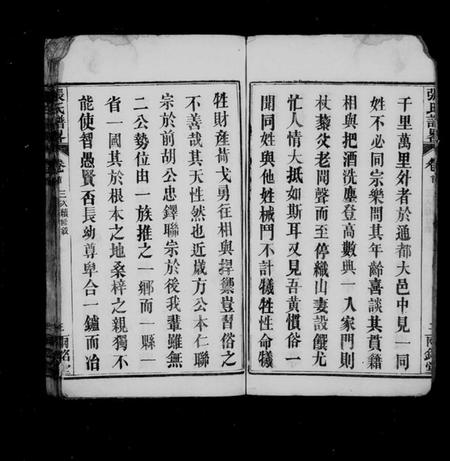 千里萬里外者於通都大邑中見一同
姓不必同宗樂問其年齡喜談其貫籍
相與把酒洗塵登高數典一入家門則
杖藜父老聞聲而至停織山妻設饌尤
忙人情大抵如斯耳又見吾黃慣俗一
聞同姓與他姓械鬥不計犧牲性命犧
牲財産荷戈勇往相與捍禦豈習俗之
不善哉其天性然也近歲方公本仁聯
宗於前胡公忠鐸聯宗於後我輩雖無
二公勢位由一族推之一鄉而一縣一
省一國其於根本之地桑梓之親獨不
能使智愚賢否長幼尊卑合一鑪而冶
張氏譜畧
卷首
三